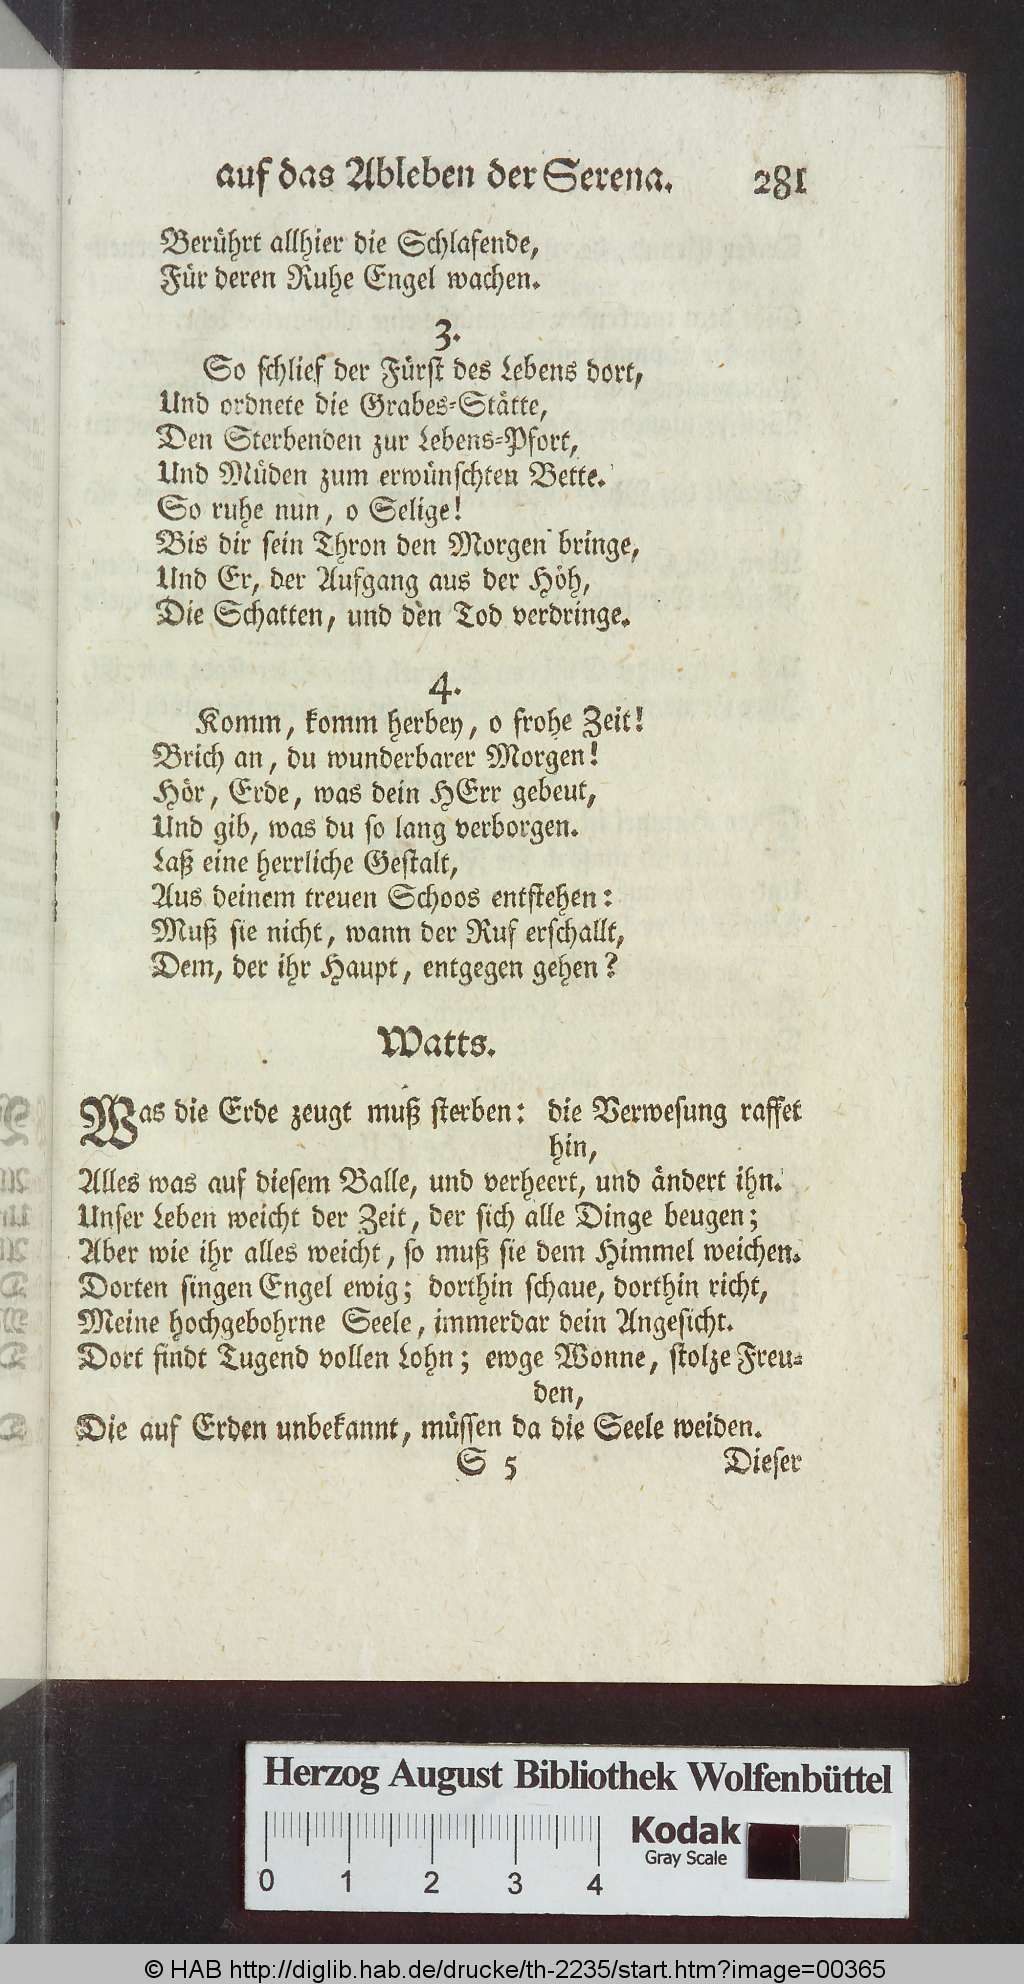 auf das Ableben der Serena. 281
Berührt allhier die Schlafende,
Für deren Ruhe Engel wachen.
3.
So schlief der Fürst des Lebens dort,
Und ordnete die Grabes-Stätte,
Den Sterbenden zur Lebens-Pfort,
Und Müden zum erwünschten Bette.
So ruhe nun, o Selige!
Bis dir sein Thron den Morgen bringe,
Und Er, der Aufgang aus der Höh,
Die Schatten, und den Tod verdringe.
4.
Komm, komm herbey, o frohe Zeit!
Brich an, du wunderbarer Morgen!
Hör, Erde, was dein HErr gebeut,
Und gib, was du so lang verborgen.
Laß eine herrliche Gestalt,
Aus deinem treuen Schoos entstehen:
Muß sie nicht, wann der Ruf erschallt,
Dem, der ihr Haupt, entgegen gehen?
Watts.
Was die Erde zeugt muß sterben: die Verwesung raffet
hin,
Alles was auf diesem Balle, und verheert, und ändert ihn.
Unser Leben weicht der Zeit, der sich alle Dinge beugen;
Aber wie ihr alles weicht, so muß sie dem Himmel weichen.
Dorten singen Engel ewig; dorthin schaue, dorthin richt,
Meine hochgebohrne Seele, immerdar dein Angesicht.
Dort findt Tugend vollen Lohn; ewge Wonne, stolze Freu-
den,
Die auf Erden unbekannt, müssen da die Seele weiden.
S 5 Dieser
Herzog August Bibliothek Wolfenbüttel
Kodak
Gray Scale
0 1 2 3 4
© HAB http://diglib.hab.de/drucke/th-2235/start.htm?image=00365